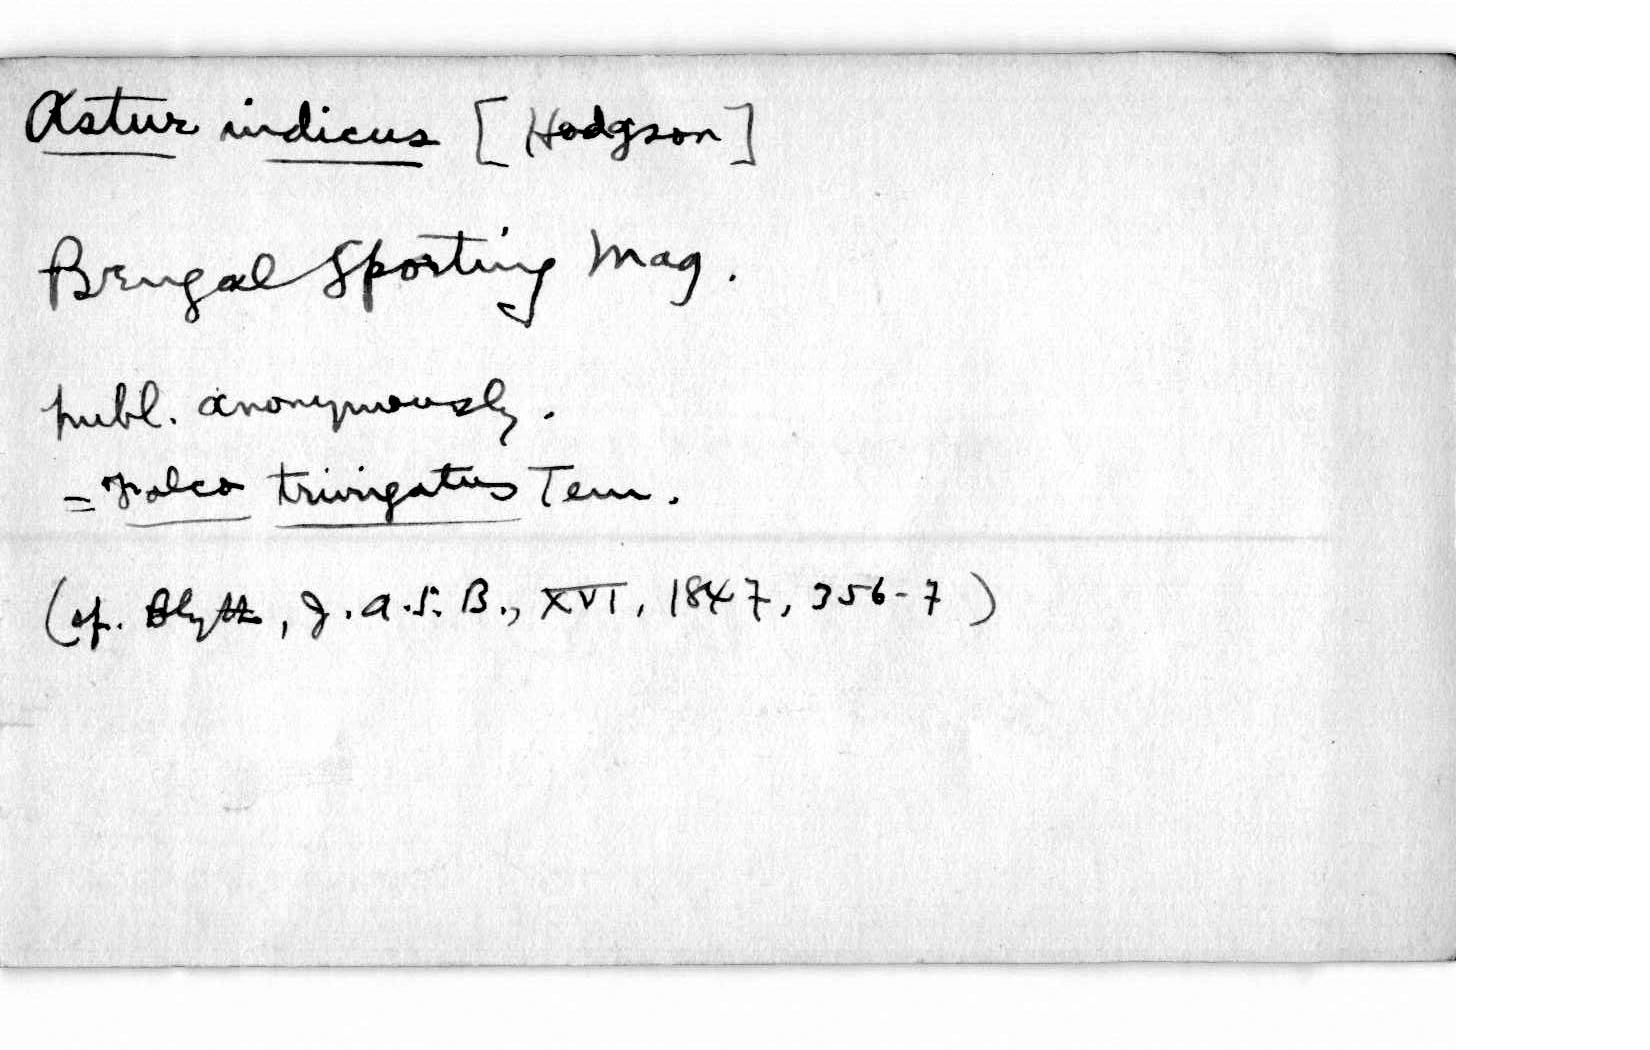 Astur indicus [Hodgson]
Bengal Sporting Mag.
publ. anonymously.
= Falco trivirgatus Tem.
(cf. Blyth, J.A.S.B., XVI, 1847, 356-7)